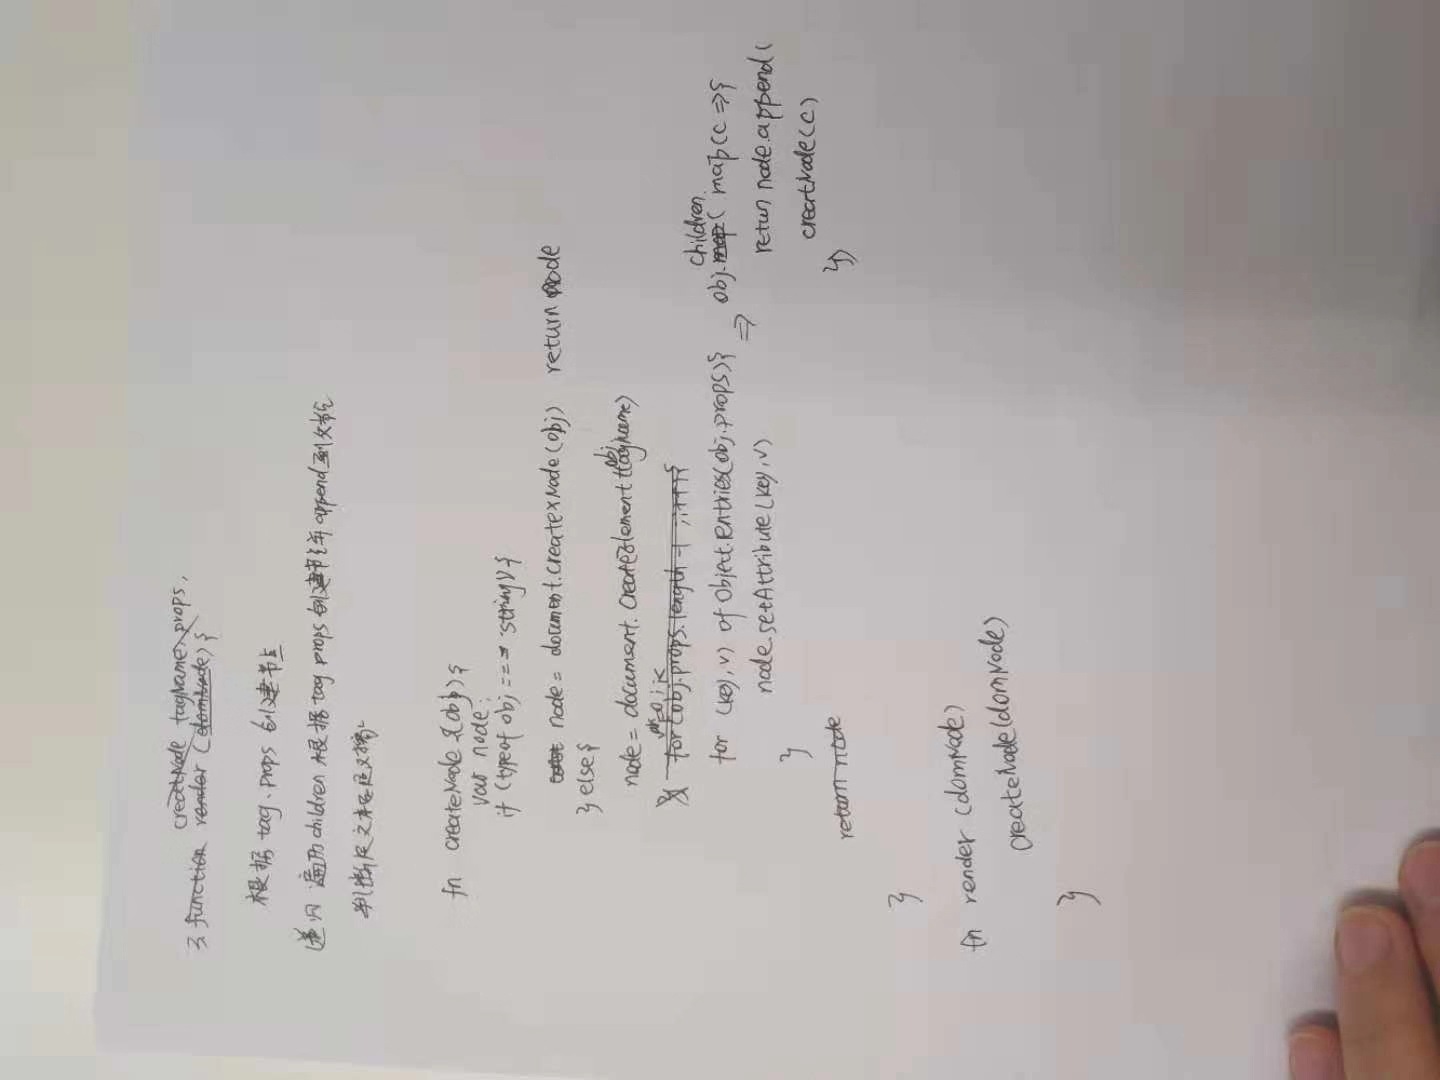 creatNode tagName, props,
3 function render (domNode) {
根据 tag. props 创建节点
递归 遍历 children 根据 tag props 创建节点 append 到父节点
判断是文本还是
fn createNode (obj) {
var node;
if (typeof obj === 'string') {
node = document.createTexNode(obj) return node
} else {
node = document.createElement (obj.tagName)
for (obj.props.length i++) {
for (key, v) of Object.entries(obj.props) {
node.setAttribute(key, v)
}
=> obj.children map(c => {
retun node.append(
creartNode(c)
})
return node
}
fn render (domNode)
createNode(domNode)
}